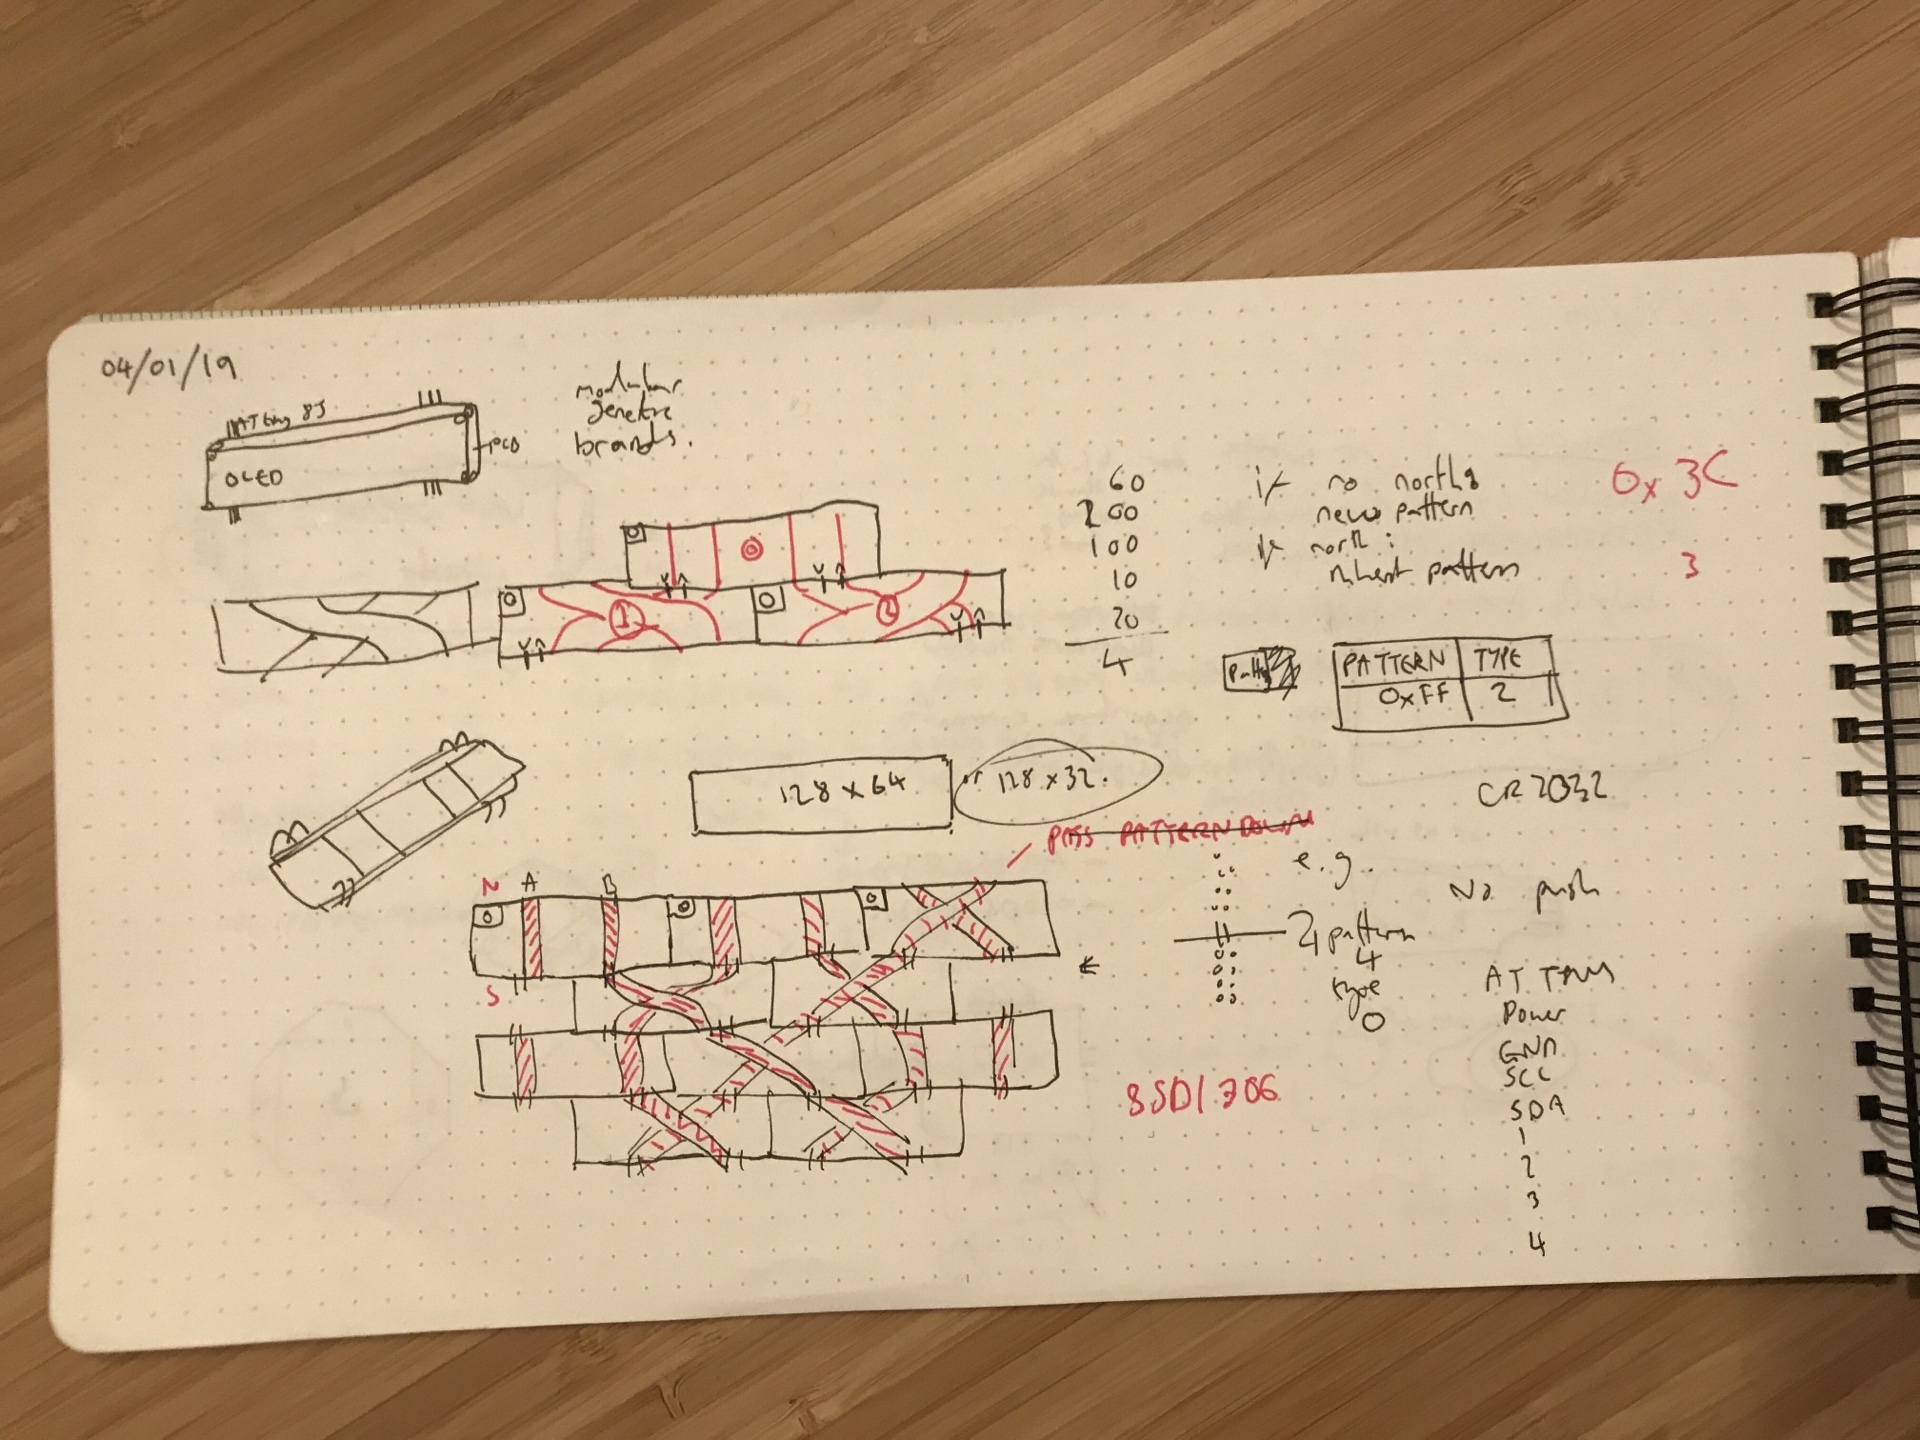 04/01/19
ATtiny 85
PCB
OLED
modular
genetic
braids.
60
200
100
10
20
4
if no north:
new pattern
if north:
inherit pattern
0x3C
3
0
1
2
PATTERN TYPE
0xFF 2
128 x 64
or 128 x 32.
CR2032
PASS PATTERN DOWN
e.g.
No push
N A B
S
pattern
4
type
0
AT Tiny
Power
GND
SCL
SDA
1
2
3
4
SSD1306